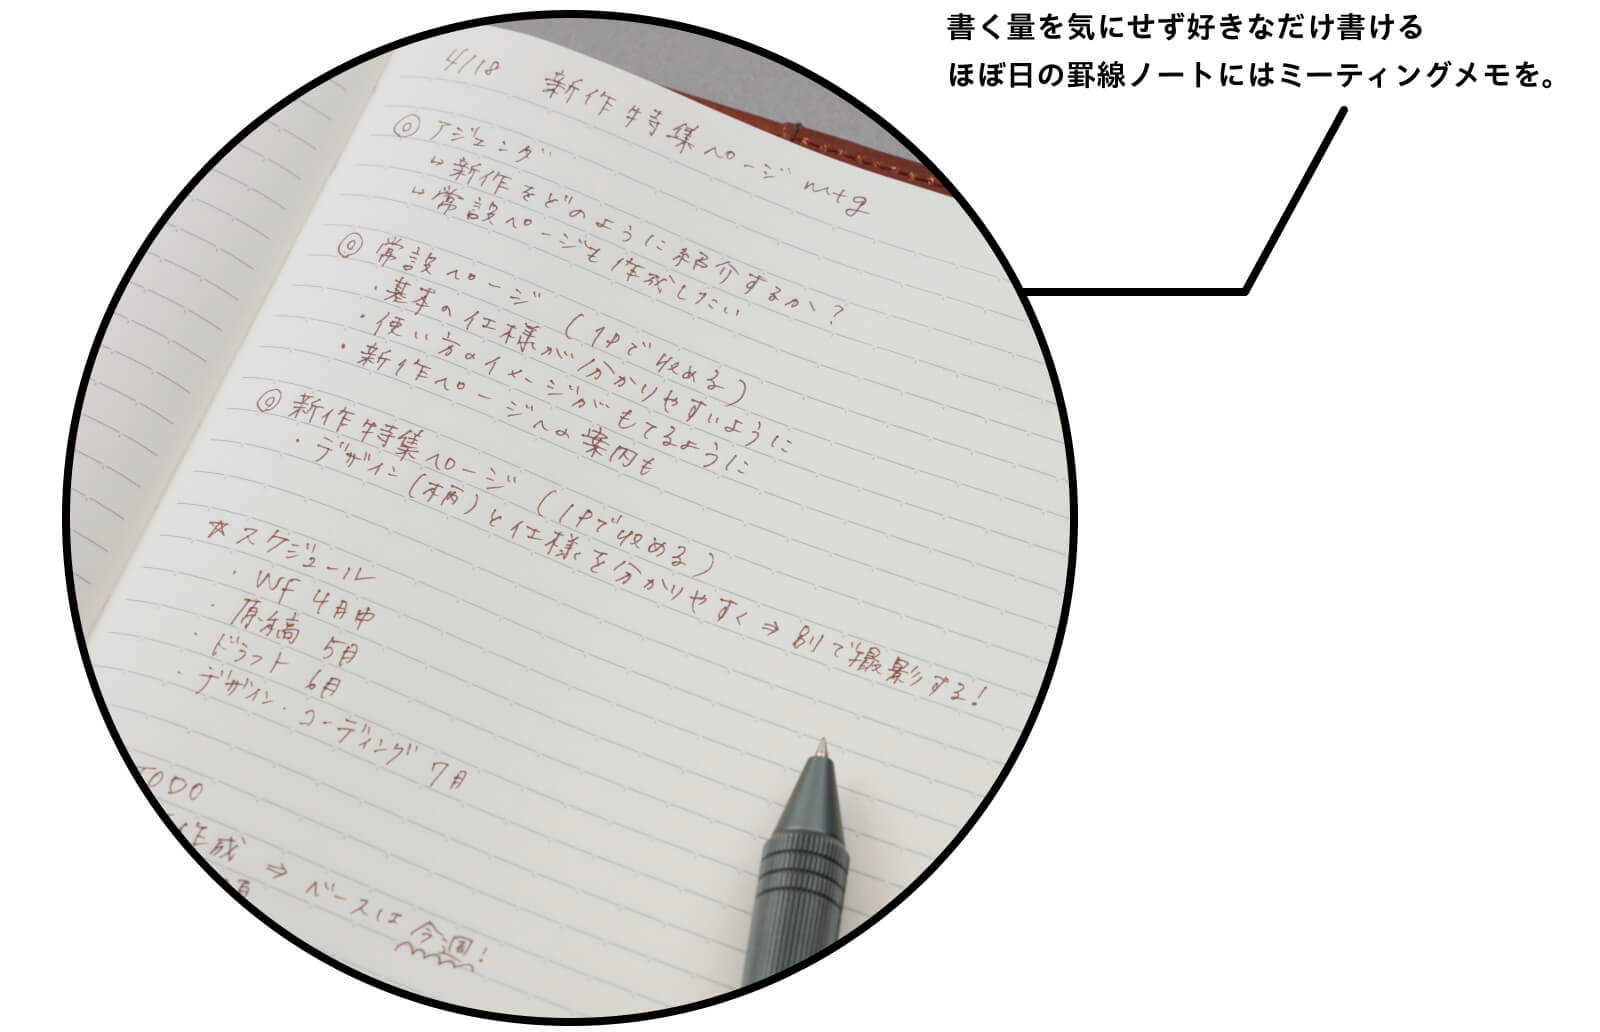 書く量を気にせず好きなだけ書ける
ほぼ日の罫線ノートにはミーティングメモを。
4/18 新作特集ページ mtg
◎ アジェンダ
↳ 新作をどのように紹介するか?
↳ 常設ページも作成したい
◎ 常設ページ (1Pで収める)
・基本の仕様が分かりやすいように
・使い方のイメージがもてるように
・新作ページへの案内も
◎ 新作特集ページ (1Pで収める)
・デザイン(柄)と仕様を分かりやすく ⇒ 別で撮影する!
☆スケジュール
・WF 4月中
・原稿 5月
・ドラフト 6月
・デザイン・コーディング 7月
TODO
作成 ⇒ ベースは今週!